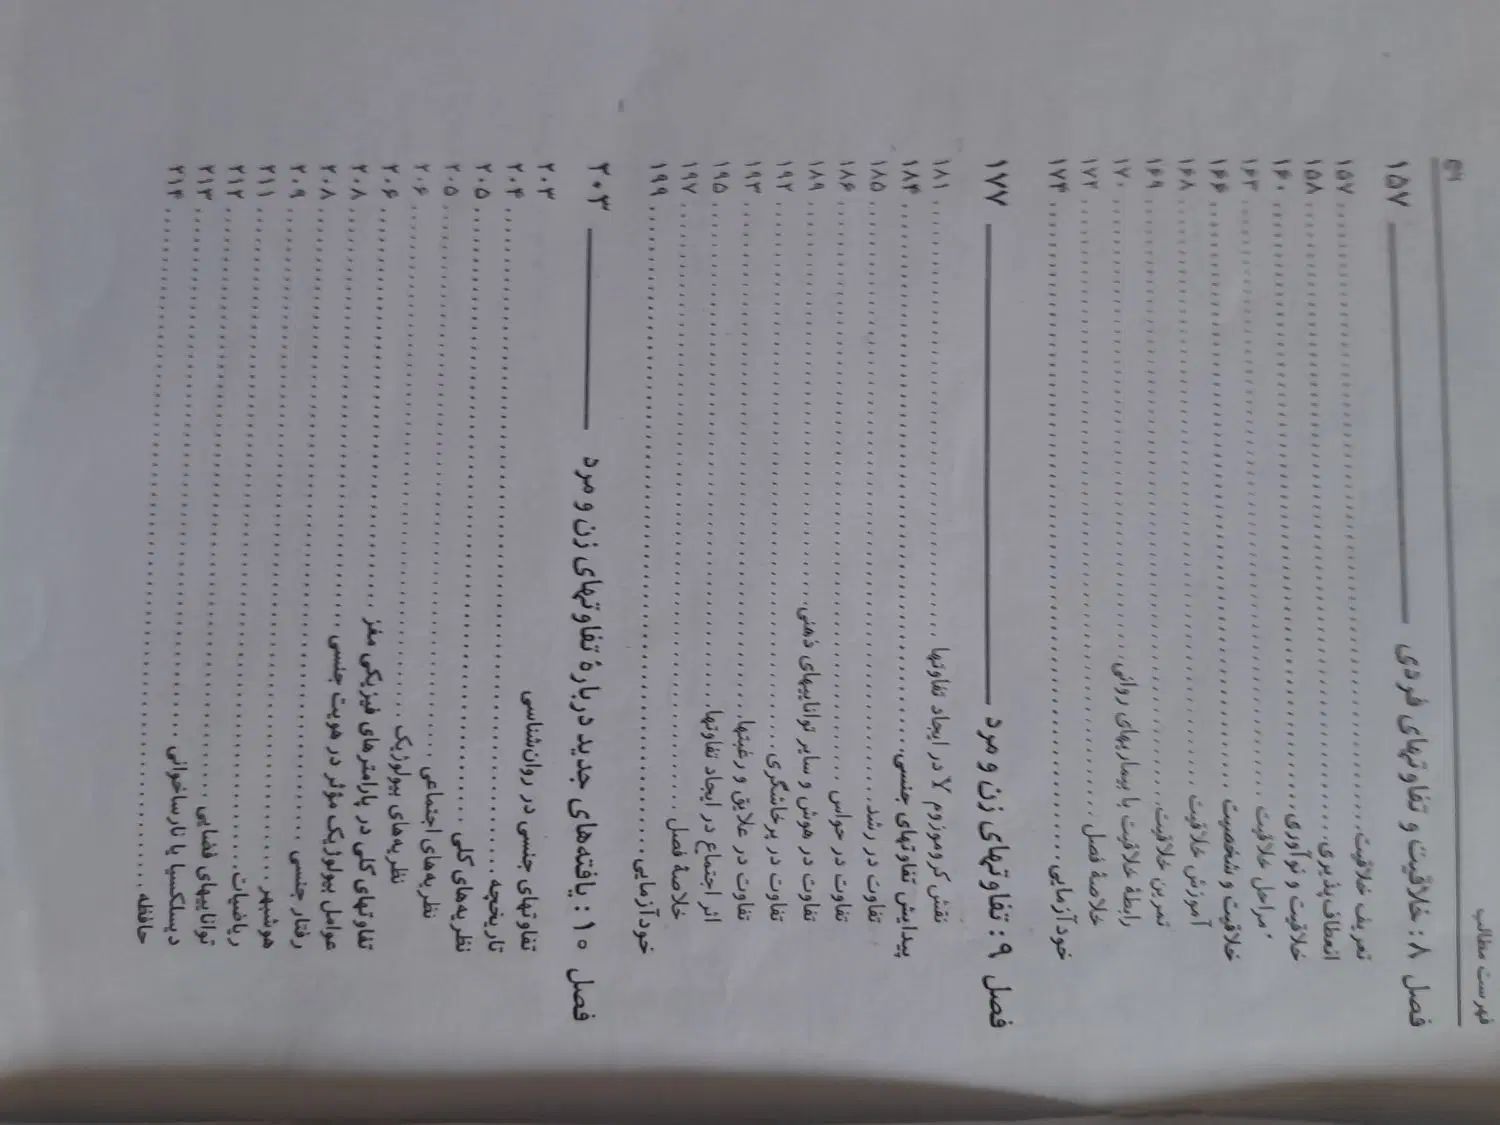 فهرست مطالب
فصل ۸: خلاقیت و تفاوتهای فردی ۱۵۷
تعریف خلاقیت ۱۵۷
انعطاف‌پذیری ۱۵۸
خلاقیت و نوآوری ۱۶۰
مراحل خلاقیت ۱۶۳
خلاقیت و شخصیت ۱۶۶
آموزش خلاقیت ۱۶۸
تمرین خلاقیت ۱۶۹
رابطهٔ خلاقیت با بیماریهای روانی ۱۷۰
خلاصهٔ فصل ۱۷۲
خودآزمایی ۱۷۴
فصل ۹: تفاوتهای زن و مرد ۱۷۷
نقش کروموزوم Y در ایجاد تفاوتها ۱۸۱
پیدایش تفاوتهای جنسی ۱۸۴
تفاوت در رشد ۱۸۵
تفاوت در حواس ۱۸۶
تفاوت در هوش و سایر تواناییهای ذهنی ۱۸۹
تفاوت در پرخاشگری ۱۹۲
تفاوت در علایق و رغبتها ۱۹۳
اثر اجتماع در ایجاد تفاوتها ۱۹۵
خلاصهٔ فصل ۱۹۷
خودآزمایی ۱۹۹
فصل ۱۰: یافته‌های جدید دربارهٔ تفاوتهای زن و مرد ۲۰۳
تفاوتهای جنسی در روان‌شناسی ۲۰۳
تاریخچه ۲۰۴
نظریه‌های کلی ۲۰۵
نظریه‌های اجتماعی ۲۰۵
نظریه‌های بیولوژیک ۲۰۶
تفاوتهای کلی در پارامترهای فیزیکی مغز ۲۰۶
عوامل بیولوژیک مؤثر در هویت جنسی ۲۰۸
رفتار جنسی ۲۰۸
هوشبهر ۲۰۹
ریاضیات ۲۱۱
تواناییهای فضایی ۲۱۲
دیسلکسیا یا نارساخوانی ۲۱۳
حافظه ۲۱۴